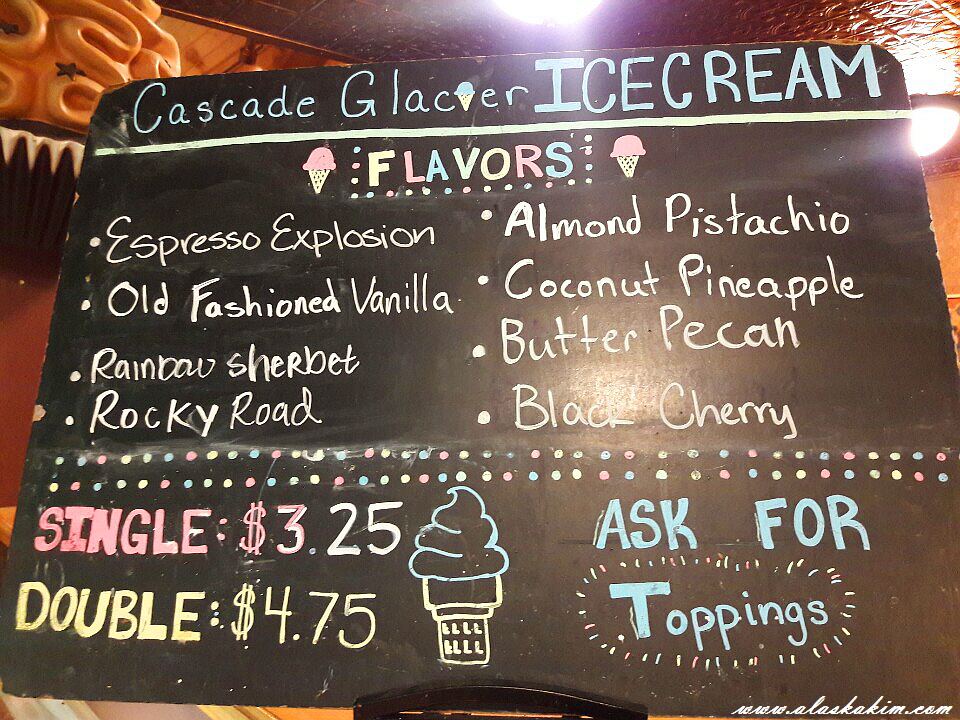 Cascade Glacier ICECREAM
FLAVORS
• Espresso Explosion
• Old Fashioned Vanilla
• Rainbow sherbet
• Rocky Road
• Almond Pistachio
• Coconut Pineapple
• Butter Pecan
• Black Cherry
SINGLE: $3.25
DOUBLE: $4.75
ASK FOR
Toppings
www.alaskakim.com